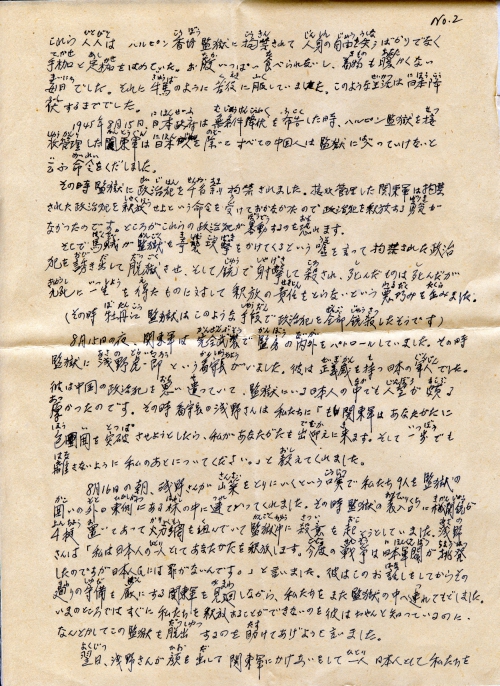 No.2
これら人人は ハルピン香坊監獄に拘禁されて 人身の自由を失うばかりでなく
手枷と足枷をはめていた。お腹いっぱい食べられないし、着物も暖かくない
毎日でした。それと牛馬のように苦役に服していました。このような生活は日本降
伏するまででした。
1945年8月15日、日本政府は無条件降伏を布告した時、ハルピン監獄を接
収管理した関東軍は日本人を除いてすべての中国人は監獄に入っていけないと
言ふ命令をくだしました。
その時監獄に政治犯千名余り拘禁されました。接收管理した関東軍は拘禁
された政治犯を釈放せよという命令を受けておかなかたので政治犯を釈放する勇気が
なかったのです。ところがこれらの政治犯が暴動するのを恐れます。
そこで馬賊が監獄を襲撃をかけてくるという嘘を言って拘禁された政治
犯を騒ぎ出して脱獄させ、そして銃で射撃して殺され、死んだものは死んだが
九死に一生を得たものに対して釈放の責任をとらないという悪巧みを企みました。
(その時 牡丹江監獄はこのような手段で政治犯を全部銃殺したそうです)
8月15日の夜、関東軍は完全武装で監舎の内外をパトロールしていました。その時
監獄に浅野虎一郎という看守がいました。彼は正義感を持つ日本の軍人でした。
彼は中国の政治犯を 違っていて、監獄にいる日本人の中でも人望が頗る
厚かったのです。その時看守の浅野さんは私たちに「もし関東軍はあなたがたに
包囲圏を突破させようとしたら、私があなたがたを出迎えに来ます。そして一歩でも
離さないように私のあとについてください。」と教えてくれました。
8月16日の朝、浅野さんが山菜をとりにいくという口実で私たち9人を監獄の
囲いの外の東側にある林の中に連れてくれました。その時監獄の表入口に機関銃が
 置いてあって火力網を組んでいて監獄中に殺意を起そうとしていました。浅野
さんは「私は日本人の一人としてあなたがたを釈放します。今度の戦争は日本軍閥が挑発
したのですが日本人民には罪がないんです。」と言いました。彼はこのお話しをしてからその
廻りの守備を厳にする関東軍を見廻しながら、私たちをまた監獄の中へ連れてもどしました。
いまのところではすぐに私たちを釈放することができないのを彼はちゃんと知っているのに、
なんとかしてこの監獄を脱出するのを助けてあげようと言いました。
翌日、浅野さんが顔を出して関東軍にかけあいをして一人日本人として私たちを